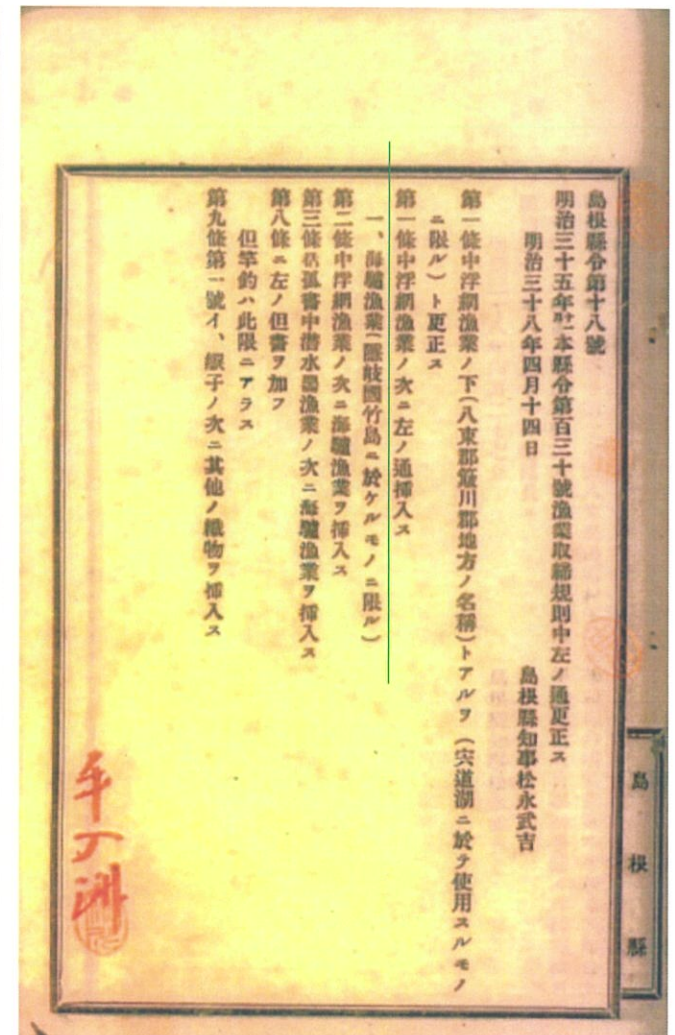 島根縣令第十八號
明治三十五年十一本縣令第百三十號漁業取締規則中左ノ通更正ス
明治三十八年四月十四日
島根縣知事松永武吉
第一條中浮網漁業ノ下(八束郡簸川郡地方ノ名稱)トアルヲ(宍道湖ニ於テ使用スルモノ
ニ限ル)ト更正ス
第一條中浮網漁業ノ次ニ左ノ通挿入ス
一、海驢漁業(隱岐國竹島ニ於ケルモノニ限ル)
第二條中浮網漁業ノ次ニ海驢漁業ヲ挿入ス
第三條括孤書中潜水器漁業ノ次ニ海驢漁業ヲ挿入ス
第八條ニ左ノ但書ヲ加フ
但竿釣ハ此限ニアラス
第九條第一號イ、緞子ノ次ニ其他ノ織物ヲ挿入ス
島根縣